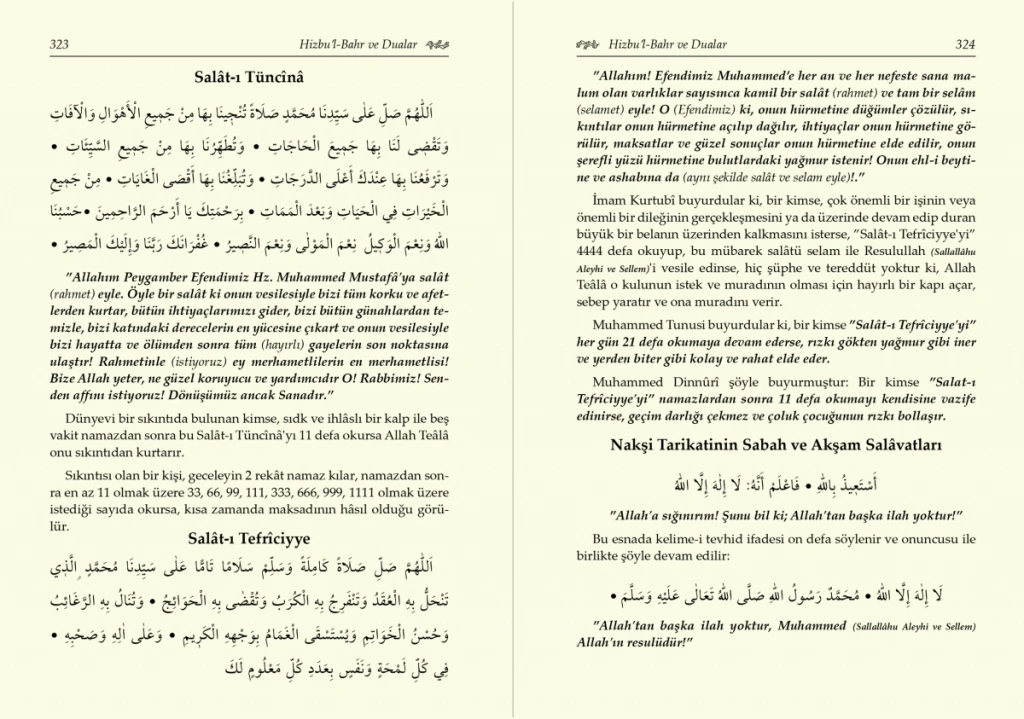 323 Hizbu'l-Bahr ve Dualar
Salât-ı Tüncînâ
اَللّٰهُمَّ صَلِّ عَلٰى سَيِّدِنَا مُحَمَّدٍ صَلَاةً تُنْجِينَا بِهَا مِنْ جَمِيعِ الْأَهْوَالِ وَالْآفَاتِ
وَتَقْضٖى لَنَا بِهَا جَمِيعَ الْحَاجَاتِ • وَتُطَهِّرُنَا بِهَا مِنْ جَمِيعِ السَّيِّئَاتِ •
وَتَرْفَعُنَا بِهَا عِنْدَكَ أَعْلَى الدَّرَجَاتِ • وَتُبَلِّغُنَا بِهَا أَقْصَى الْغَايَاتِ • مِنْ جَمِيعِ
الْخَيْرَاتِ فِي الْحَيَاتِ وَبَعْدَ الْمَمَاتِ • بِرَحْمَتِكَ يَا أَرْحَمَ الرَّاحِمِينَ •حَسْبُنَا
اللهُ وَنِعْمَ الْوَكِيلُ نِعْمَ الْمَوْلٰى وَنِعْمَ النَّصِيرُ • غُفْرَانَكَ رَبَّنَا وَإِلَيْكَ الْمَصِيرُ •
"Allahım Peygamber Efendimiz Hz. Muhammed Mustafâ'ya salât
(rahmet) eyle. Öyle bir salât ki onun vesilesiyle bizi tüm korku ve afet-
lerden kurtar, bütün ihtiyaçlarımızı gider, bizi bütün günahlardan te-
mizle, bizi katındaki derecelerin en yücesine çıkart ve onun vesilesiyle
bizi hayatta ve ölümden sonra tüm (hayırlı) gayelerin son noktasına
ulaştır! Rahmetinle (istiyoruz) ey merhametlilerin en merhametlisi!
Bize Allah yeter, ne güzel koruyucu ve yardımcıdır O! Rabbimiz! Sen-
den affını istiyoruz! Dönüşümüz ancak Sanadır."
Dünyevi bir sıkıntıda bulunan kimse, sıdk ve ihlâslı bir kalp ile beş
vakit namazdan sonra bu Salât-ı Tüncînâ'yı 11 defa okursa Allah Teâlâ
onu sıkıntıdan kurtarır.
Sıkıntısı olan bir kişi, geceleyin 2 rekât namaz kılar, namazdan son-
ra en az 11 olmak üzere 33, 66, 99, 111, 333, 666, 999, 1111 olmak üzere
istediği sayıda okursa, kısa zamanda maksadının hâsıl olduğu görü-
lür.
Salât-ı Tefrîciyye
اَللّٰهُمَّ صَلِّ صَلَاةً كَامِلَةً وَسَلِّمْ سَلَامًا تَامًّا عَلٰى سَيِّدِنَا مُحَمَّدٍ ۨالَّذٖي
تَنْحَلُّ بِهِ الْعُقَدُ وَتَنْفَرِجُ بِهِ الْكُرَبُ وَتُقْضٰى بِهِ الْحَوَائِجُ • وَتُنَالُ بِهِ الرَّغَائِبُ
وَحُسْنُ الْخَوَاتِمِ وَيُسْتَسْقَى الْغَمَامُ بِوَجْهِهِ الْكَرِيمِ • وَعَلٰى اٰلِهِ وَصَحْبِهِ •
فِي كُلِّ لَمْحَةٍ وَنَفَسٍ بِعَدَدِ كُلِّ مَعْلُومٍ لَكَ
Hizbu'l-Bahr ve Dualar 324
"Allahım! Efendimiz Muhammed'e her an ve her nefeste sana ma-
lum olan varlıklar sayısınca kamil bir salât (rahmet) ve tam bir selâm
(selamet) eyle! O (Efendimiz) ki, onun hürmetine düğümler çözülür, sı-
kıntılar onun hürmetine açılıp dağılır, ihtiyaçlar onun hürmetine gö-
rülür, maksatlar ve güzel sonuçlar onun hürmetine elde edilir, onun
şerefli yüzü hürmetine bulutlardaki yağmur istenir! Onun ehl-i beyti-
ne ve ashabına da (aynı şekilde salât ve selam eyle)!."
İmam Kurtubî buyurdular ki, bir kimse, çok önemli bir işinin veya
önemli bir dileğinin gerçekleşmesini ya da üzerinde devam edip duran
büyük bir belanın üzerinden kalkmasını isterse, "Salât-ı Tefrîciyye'yi"
4444 defa okuyup, bu mübarek salâtü selam ile Resulullah (Sallallâhu
Aleyhi ve Sellem)'i vesile edinse, hiç şüphe ve tereddüt yoktur ki, Allah
Teâlâ o kulunun istek ve muradının olması için hayırlı bir kapı açar,
sebep yaratır ve ona muradını verir.
Muhammed Tunusi buyurdular ki, bir kimse "Salât-ı Tefrîciyye'yi"
her gün 21 defa okumaya devam ederse, rızkı gökten yağmur gibi iner
ve yerden biter gibi kolay ve rahat elde eder.
Muhammed Dinnûrî şöyle buyurmuştur: Bir kimse "Salat-ı
Tefrîciyye'yi" namazlardan sonra 11 defa okumayı kendisine vazife
edinirse, geçim darlığı çekmez ve çoluk çocuğunun rızkı bollaşır.
Nakşi Tarikatinin Sabah ve Akşam Salâvatları
أَسْتَعِيذُ بِاللهِ • فَاعْلَمْ أَنَّهُ: لَا إِلٰهَ إِلَّا اللهُ
"Allah'a sığınırım! Şunu bil ki; Allah'tan başka ilah yoktur!"
Bu esnada kelime-i tevhid ifadesi on defa söylenir ve onuncusu ile
birlikte şöyle devam edilir:
لَا إِلٰهَ إِلَّا اللهُ • مُحَمَّدٌ رَسُولُ اللهِ صَلَّى اللهُ تَعَالٰى عَلَيْهِ وَسَلَّمَ •
"Allah'tan başka ilah yoktur, Muhammed (Sallallâhu Aleyhi ve Sellem)
Allah'ın resulüdür!"